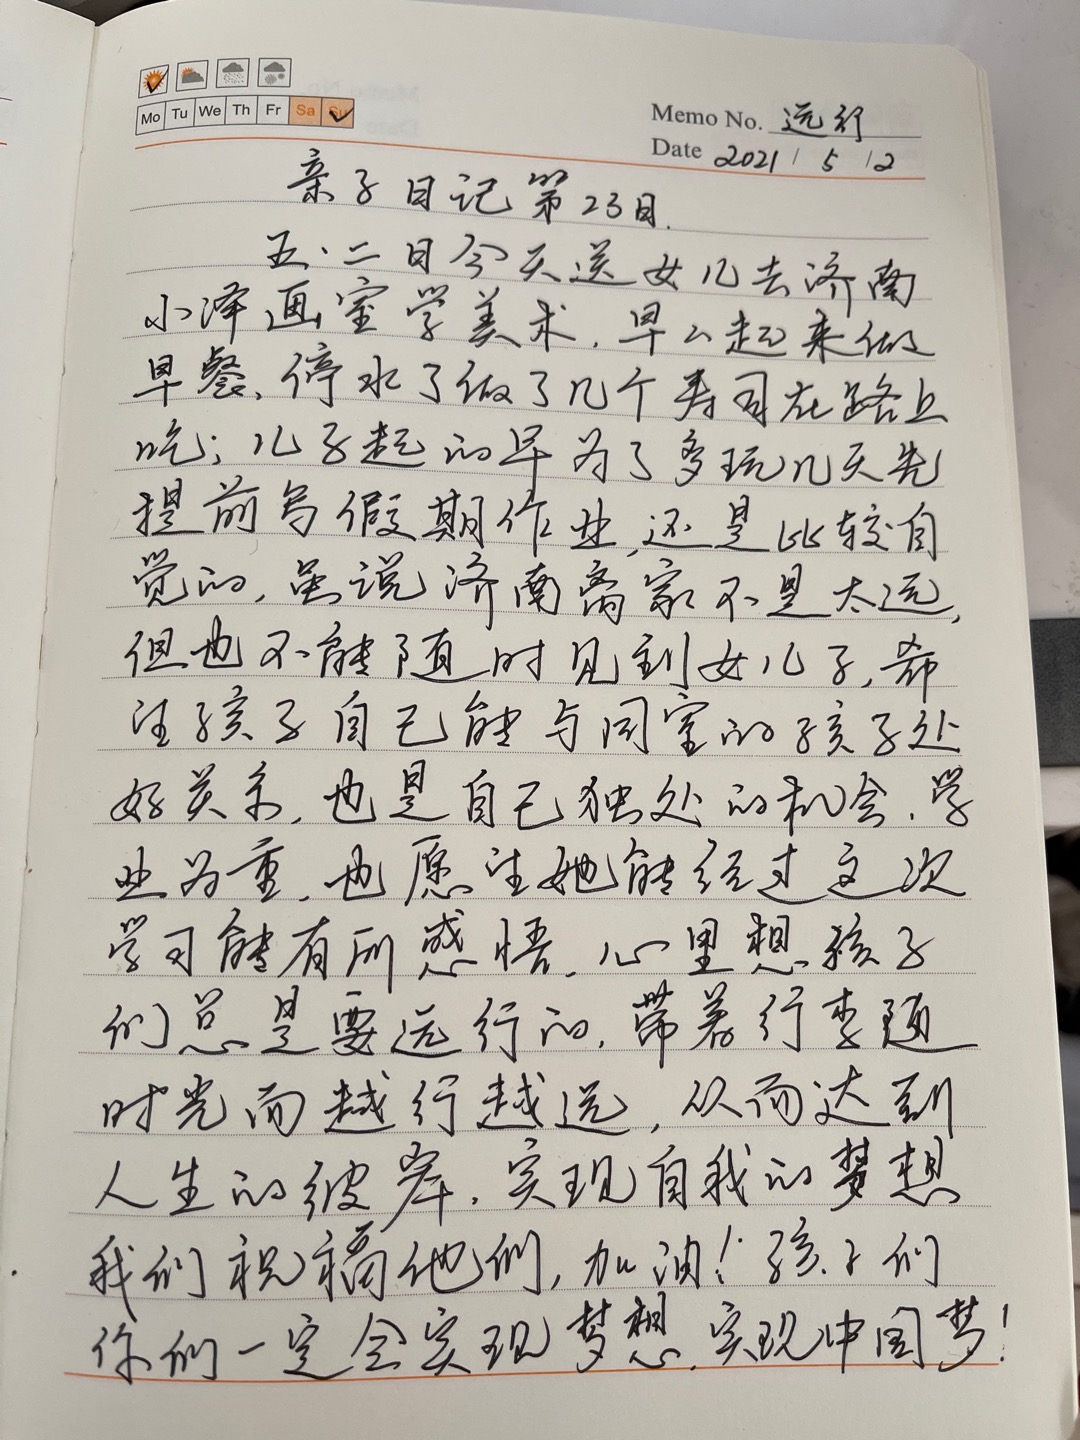 Mo Tu We Th Fr Sa Su
Memo No. 远行
Date 2021 / 5 / 2
亲子日记第23日.
五.二日今天送女儿去济南
小泽画室学美术,早上起来做
早餐,停水了做了几个寿司在路上
吃;儿子起的早为了多玩几天先
提前写假期作业,还是比较自
觉的,虽说济南离家不是太远,
但也不能随时见到女儿子,希
让孩子自己能与同室的孩子处
好关系,也是自己独处的机会.学
业为重,也愿让她能经过这次
学习能有所感悟,心里想孩子
们总是要远行的,带着行李随
时光而越行越远,从而达到
人生的彼岸.实现自我的梦想
我们祝福他们,加油!孩子们
你们一定会实现梦想.实现中国梦!